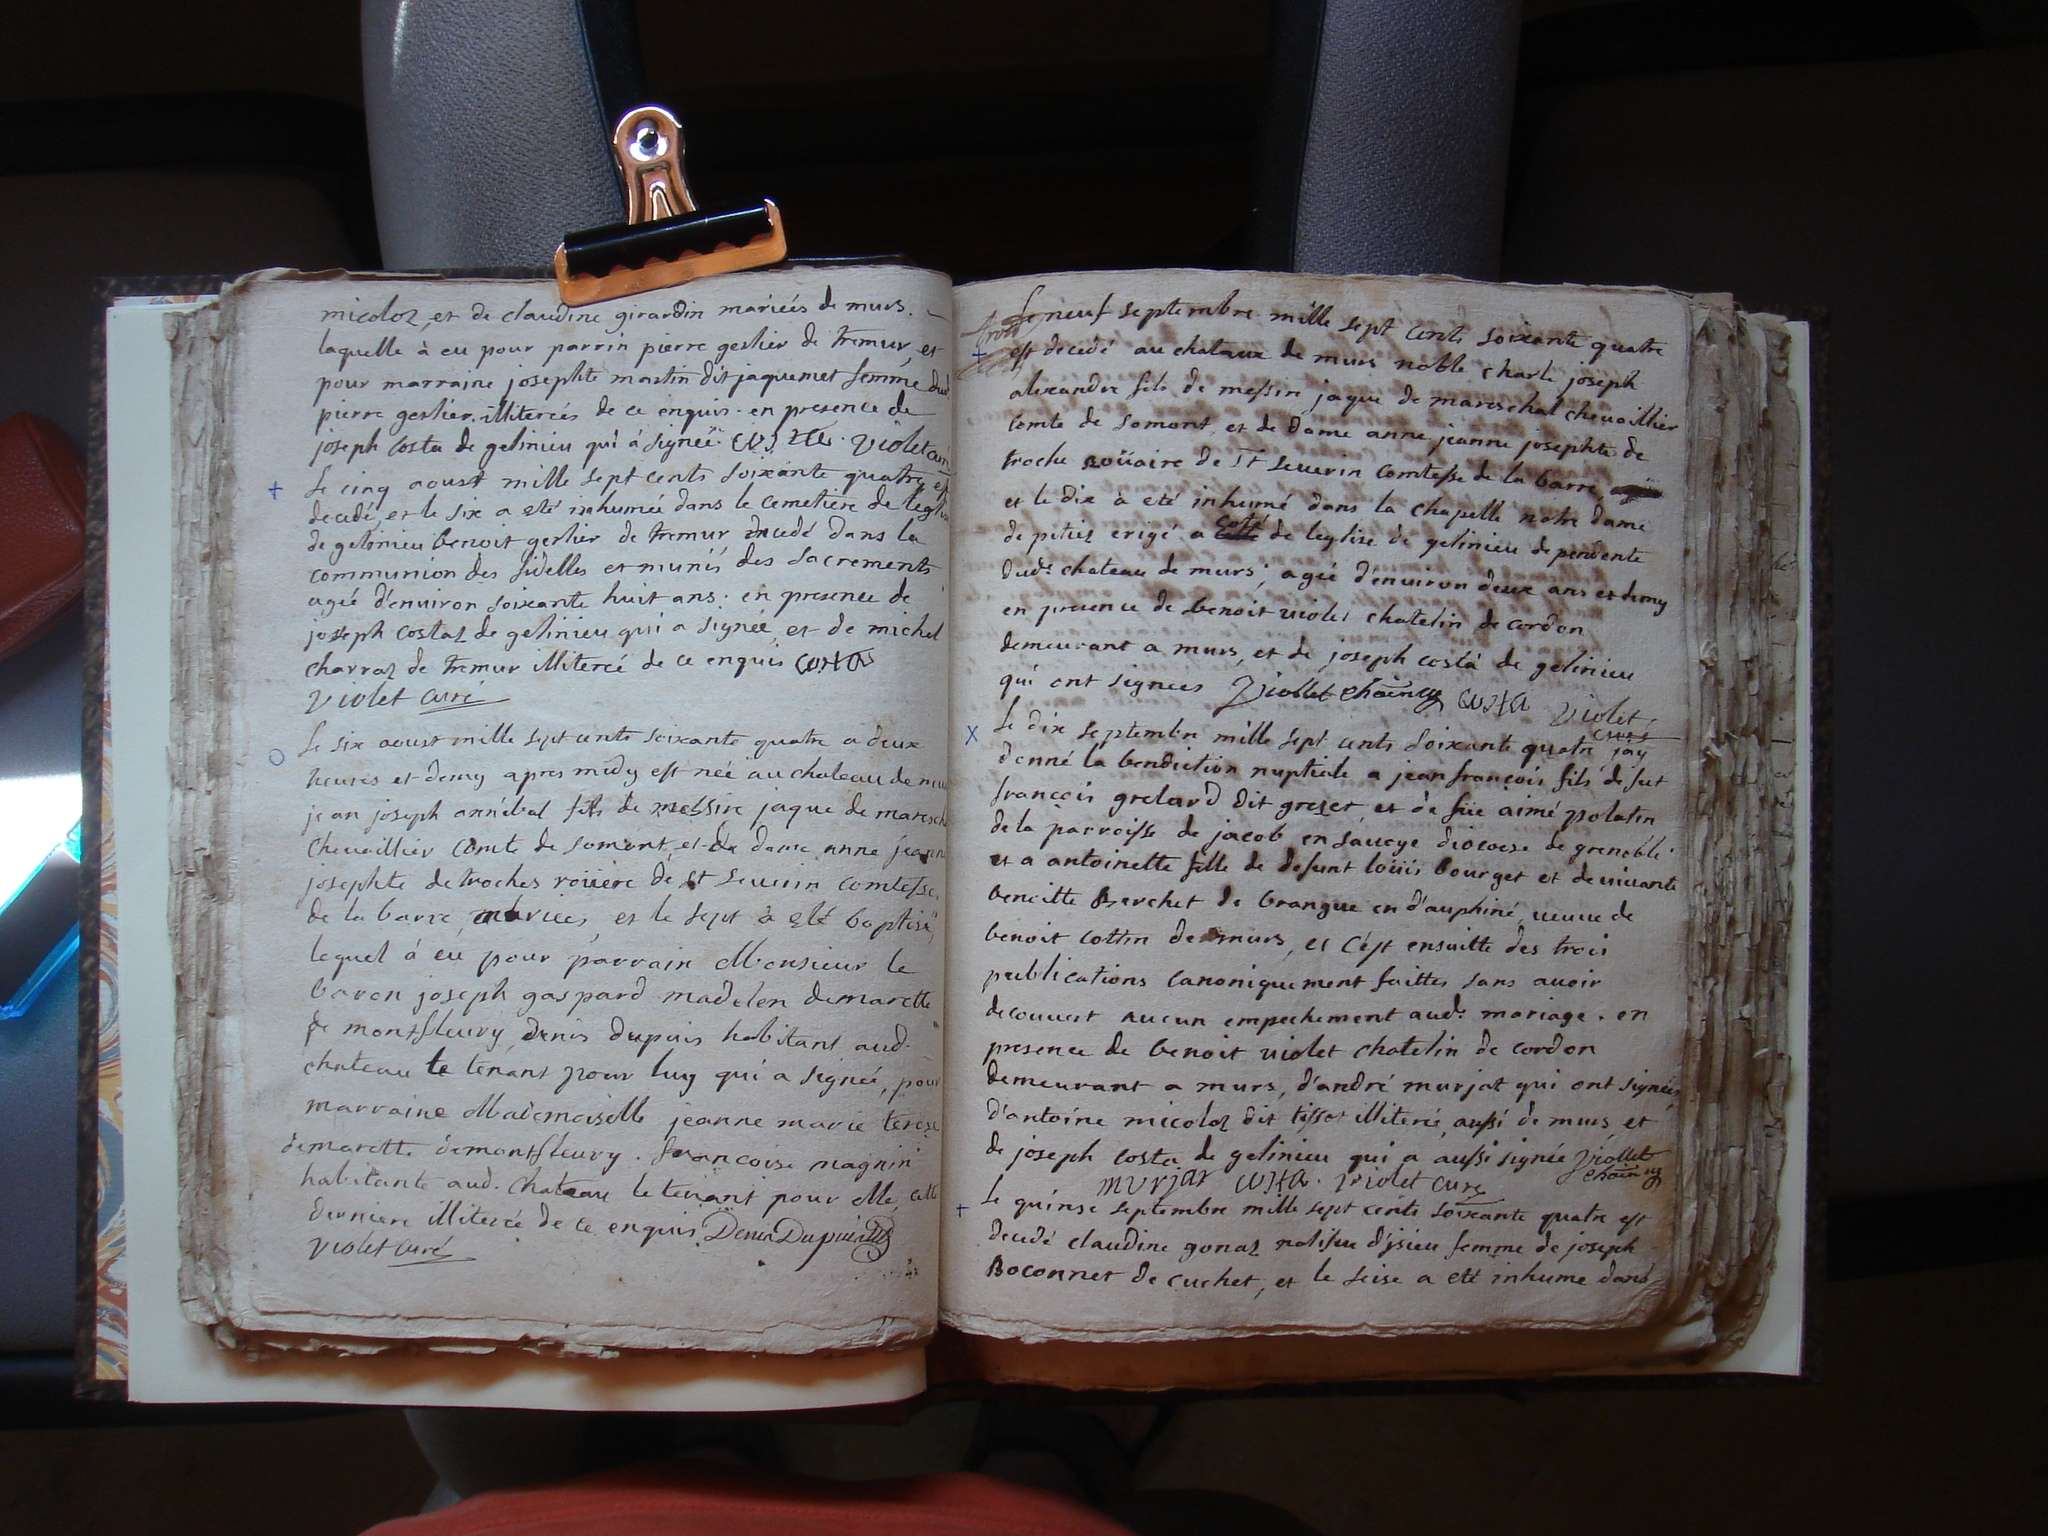 micoloz, et de claudine girardin mariéés de murs.
laquelle à eu pour parrin pierre gerlier de tremur, et
pour marraine josephte martin dit jaquemet femme dud
pierre gerlier. illiterés de ce enquis. en presence de
joseph costa de gelinieu qui à signéé. costa. violet curé
Le cinq aoust mille sept cents soixante quatre est
decedé, et le six a eté inhumée dans le cemetiere de leglise
de gelinieu benoit gerlier de tremur decedé dans la
communion des fidelles et munis des sacrements
agié d'environ soixante huit ans. en presence de
joseph costaz de gelinieu qui a signéé, et de michel
charraz de tremur illiteré de ce enquis costa
violet curé
Le six aoust mille sept cents soixante quatre a deux
heures et demy apres midy est néé au chateau de murs
jean joseph annibal fils de messire jaque de mareschal
chevaillier comte de somont, et de dame anne jeanne
josephte de troches roüere de st severin comtesse
de la barre, mariees, et le sept à eté baptisé,
lequel à eu pour parrain Monsieur le
baron joseph gaspard madelen demarette
de montfleury, denis dupuis habitant aud.
chateau le tenant pour luy qui a signéé, pour
marraine Mademoiselle jeanne marie terese
demarette demontfleury. francoise magnin
habitante aud. chateau le tenant pour elle, cette
derniere illiterée de ce enquis Denis Dupuis
violet curé
Le neuf septembre mille sept cents soixante quatre
est decedé au chataux de murs noble charle joseph
alexandre fils de messire jaque de mareschal chevaillier
comte de somont, et de dame anne jeanne josephte de
troche roüaire de St severin comtesse de la barre,
et le dix à eté inhumé dans la chapelle notre dame
de pitiez erigé a coté de leglise de gelinieu dependente
dud. chateau de murs; agié d'environ deux ans et demy
en presence de benoit violet chatelin de cordon
demeurant a murs, et de joseph costa de gelinieu
qui ont signees Viollet costa violet
curé
Le dix septembre mille sept cents soixante quatre jay
donné la benediction nuptiale a jean françois fils de fut
françois grelard dit grezet, et de füe aimé polatin
de la parroisse de jacob en savoye diocese de grenoble
et a antoinette fille de defunt loüis bourget et de vivante
benoitte Berchet de brangue en d'auphiné, veuve de
benoit cottin de murs, et c'est ensuitte des trois
publications canoniquement faittes sans avoir
decouvert aucun empechement aud. mariage. en
presence de benoit violet chatelin de cordon
demeurant a murs, d'andré murjat qui ont signéés,
d'antoine micoloz dit tissot illiteré, aussi de murs, et
de joseph costa de gelinieu qui a aussi signéé Viollet
murjat costa. violet curé
Le quinse septembre mille sept cents soixante quatre est
decedé claudine gonaz natifve d'jsieu femme de joseph
Boconnet de cuchet, et le seise a eté inhume dans